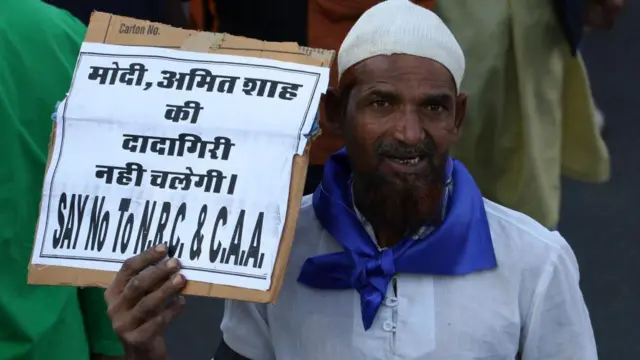 Carton No.
मोदी, अमित शाह
की
दादागिरी
नही चलेगी।
SAY No To N.R.C. & C.A.A.